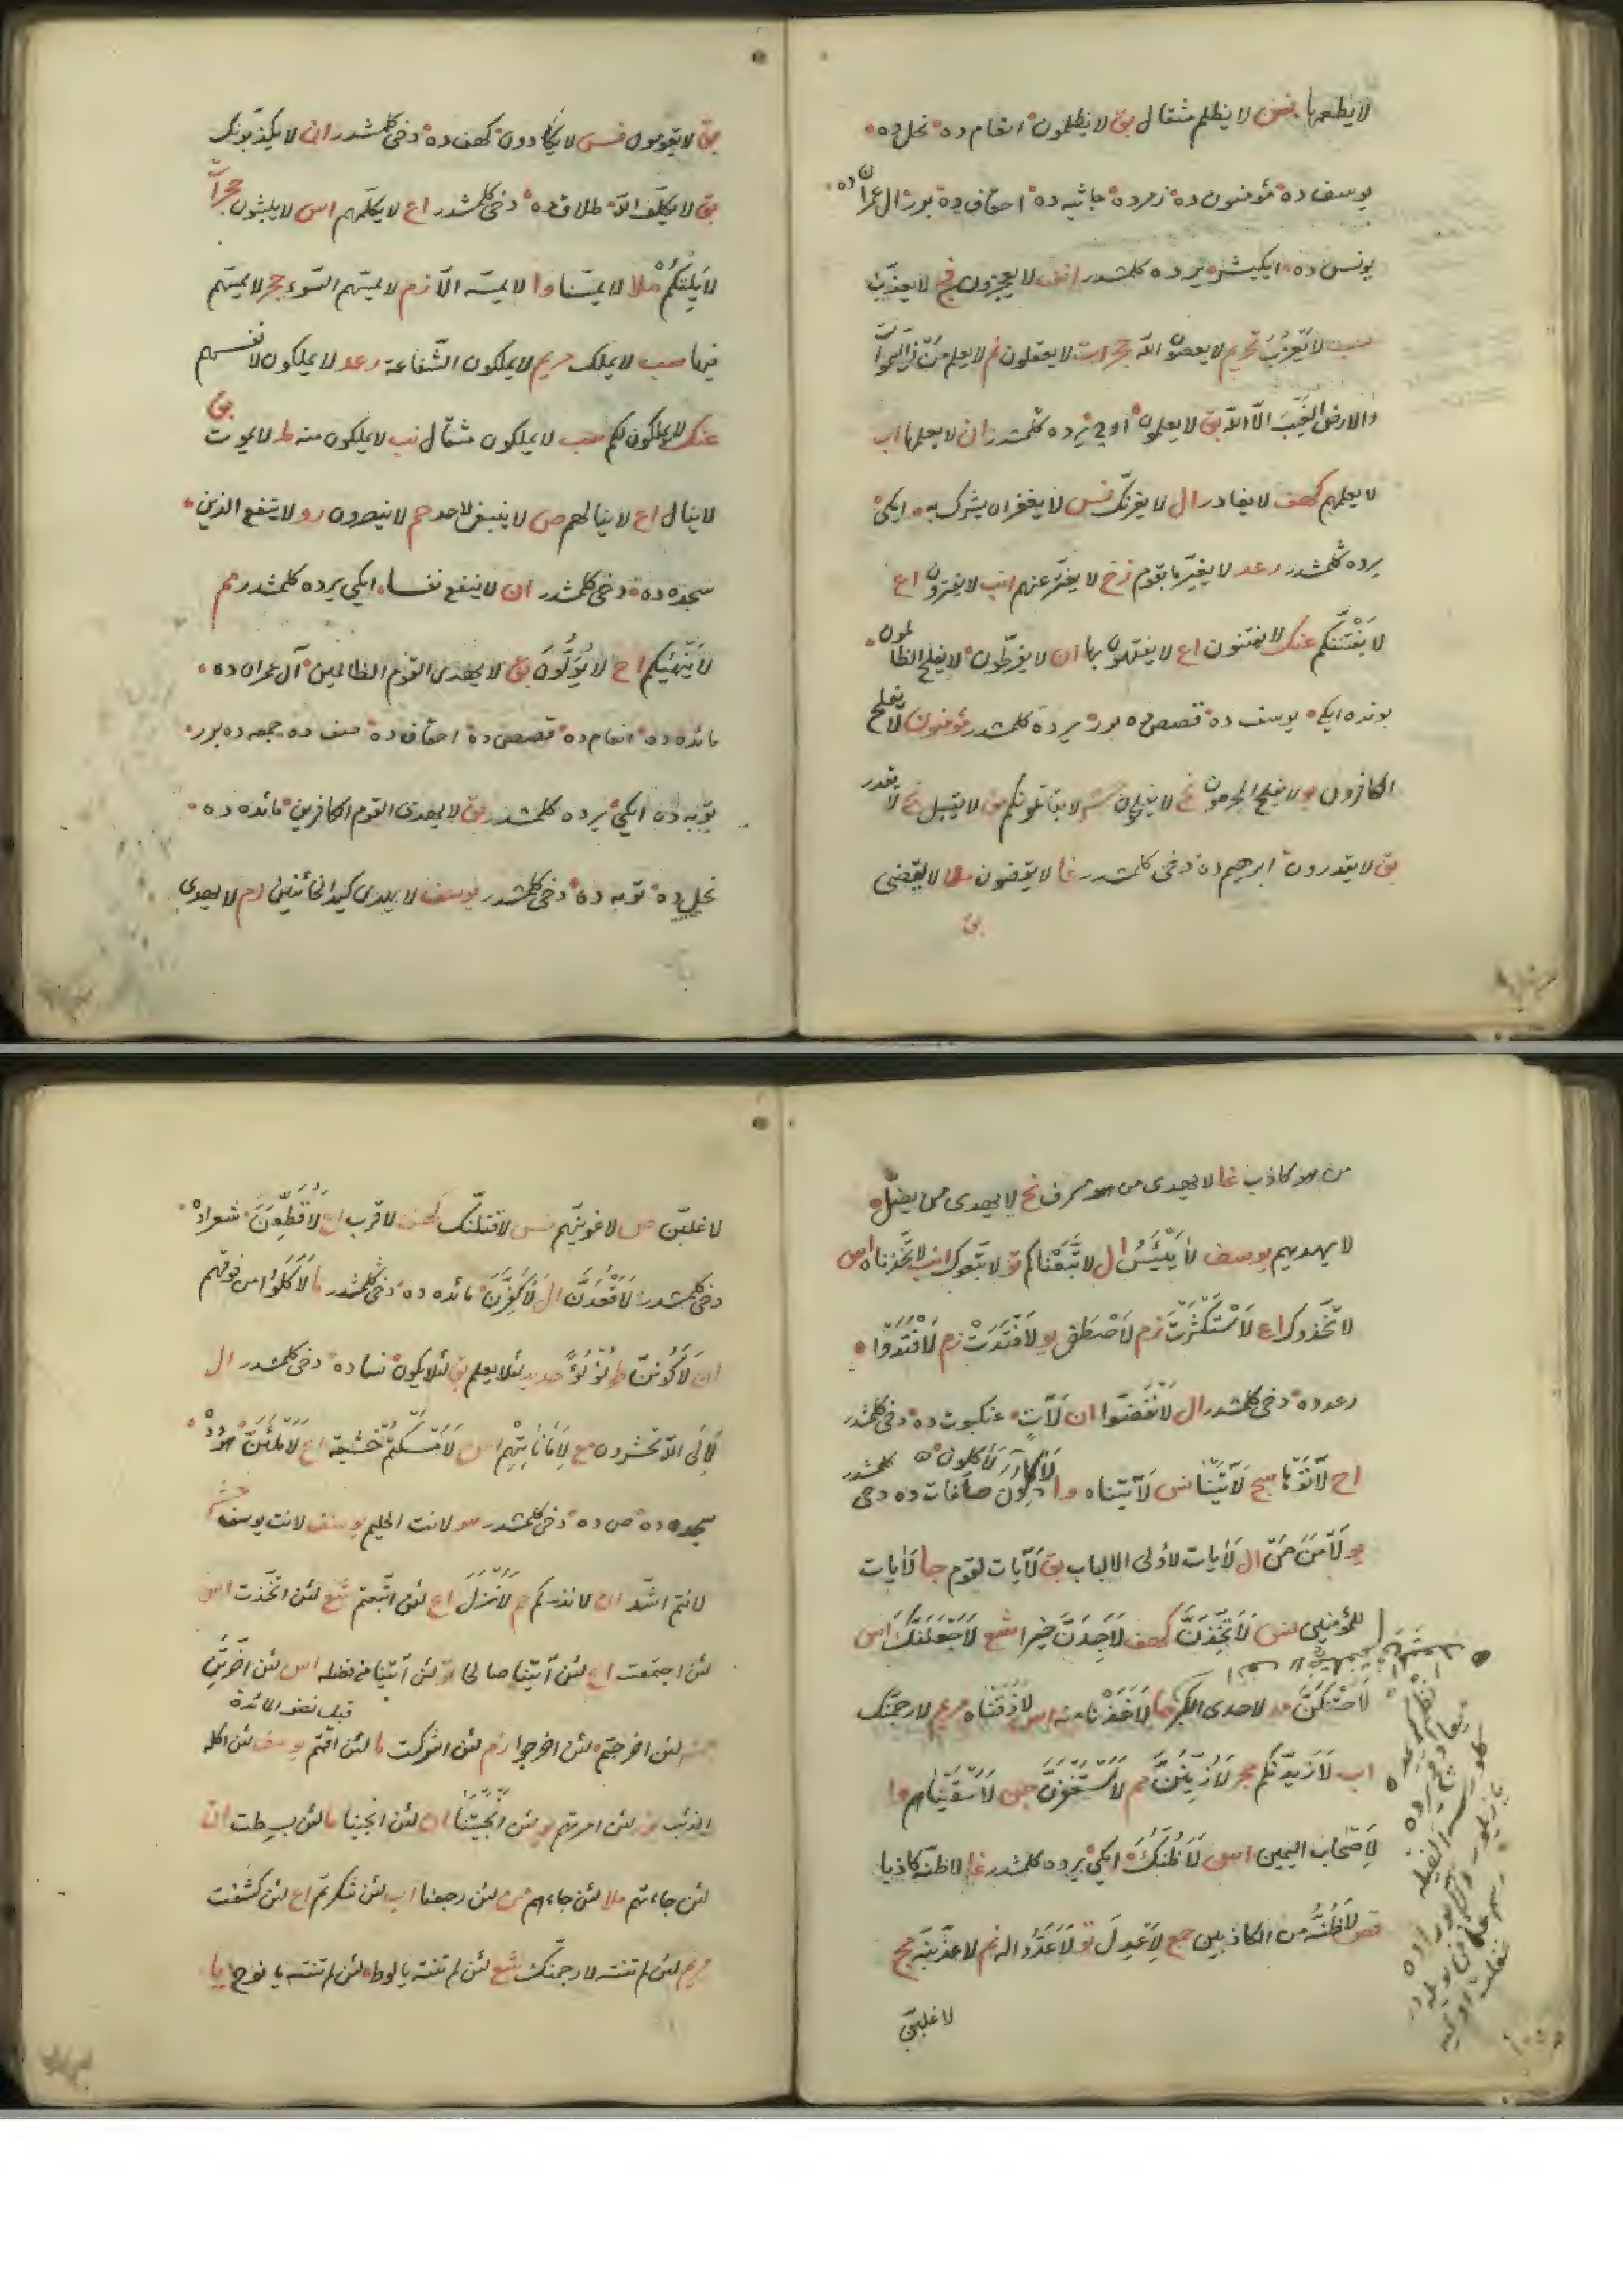 لا يطعمها نس لا يظلم مثقال بق لا يظلمون انعام ده نحل ده
يوسف ده مؤمنون ده زمر ده جاثيه ده احقاف ده بور ال عمران ده
يونس ده ايكيشر يرده كلمشدر انف لا يعجزون فج لا يعذب
سب لا يعزب تحريم لا يعصون الله حجرات لا يعقلون نم لا يعلم من فى السموات
والارض الغيب الا الله بق لا يعلمون اوچ يرده كلمشدر ان لا يعلمها اب
لا يعلمهم كهف لا يغادر ال لا يغرنك نس لا يغفر ان يشرك به ايكى
يرده كلمشدر رعد لا يغير ما بقوم زخ لا يفتر عنهم انب لا يفترون اع
لا يفتننكم عنك لا يفتنون اع لا يفقهون بها ان لا يفرطون لا يفلح الظالمون
بونده ايكى يوسف ده قصص ده بور يرده كلمشدر مؤمنون لا يفلح
الكافرون يو لا يفلح المجرمون نح لا يفلحون حشر لا يقاتلونكم بق لا يقبل نح لا يقدر
بق لا يقدرون ابرهيم ده دخى كلمشدر غا لا يقضون ملا لا يقضى
بق
بق لا يقومون نس لا يكادون كهف ده دخى كلمشدر ان لا يكذبونك
بق لا يكلف الله طلاق ده دخى كلمشدر اع لا يكلمهم اس لا يلبثون حجرات
لا يلتكم ملا لا يمسنا وا لا يمسه الا زم لا يمسهم السوء حجر لا يمسهم
فيها سب لا يملك مريم لا يملكون الشفاعة رعد لا يملكون لانفسهم
عنك لا يملكون لكم سب لا يملكون مثقال نب لا يملكون منه ط لا يموت بق
لا ينال اع لا ينالهم ص لا ينبغى لاحد حم لا ينصرون رو لا ينفع الذين
سجده ده دخى كلمشدر ان لا ينفع نفسا ايكى يرده كلمشدر مم
لا ينهيكم اح لا يولون بق لا يهدى القوم الظالمين آل عمران ده
مائده ده انعام ده قصص ده احقاف ده صف ده جمعه ده بور
توبه ده ايكى يرده كلمشدر بق لا يهدى القوم الكافرين مائده ده
نحل ده توبه ده دخى كلمشدر يوسف لا يهدى كيد الخائنين زم لا يهدى
من هو كاذب غا لا يهدى من هو مسرف نح لا يهدى من يضل
لا يهديهم يوسف لا يَيْئَسُ ال لاتَّبَعْناكم تو لاتبعوك انب لاتخذناه اس
لاتخذوك اع لَاسْتَكْثَرْتُ زم لَاصْطَفى يو لَافْتَدَتْ زم لَافْتَدَوْا
رعد ده دخى كلمشدر ال لَانْفَضُّوا ان لَآتٍ عنكبوت ده دخى كلمشدر
اح لَآتَوْها سج لَآتَيْنا نس لَآتَيْناه وا لَآكلون صافات ده دخى كلمشدر
يو لَآمَنَ مَنْ ال لَآيات لاولى الالباب بق لَآيات لقوم جا لَآيات
للمؤمنين نس لَاَتَّخِذَنَّ كهف لَاَجِدَنَّ خيرا شع لَاَجْعَلَنَّكَ اس
لَاَحْتَنِكَنَّ مد لاحدى الكبر حا لَاَخَذْنا منه اس لَاَذَقْناه مريم لارجمنك
اب لَاَزيدنكم حجر لَاُزَيِّنَنَّ مم لَاَسْتَغْفِرَنَّ جن لَاَسْقَيْناهم وا
لِاَصْحاب اليمين اس لَاَظُنُّكَ ايكى يرده كلمشدر غا لاظنه كاذبا
قص لَاَظُنُّهُ من الكاذبين جمع لِاَعْدِلَ تو لَاَعَدُّوا له نم لاعذبنه مج
لاغلبن
لاغلبن ص لاغوينهم نس لاقتلنك كهف لاقرب اع لَاُقَطِّعَنَّ شعراده
دخى كلمشدر لَاَقْعُدَنَّ ال لَاُكَفِّرَنَّ مائده ده دخى كلمشدر ما لَاَكَلُوا من فوقهم
ان لَاَكُونَنَّ ط لُؤْلُؤً حديد لئلا يعلم بق لئلا يكون نسا ده دخى كلمشدر ال
لَاِلَى الله تحشرون مع لِاَمَاناتِهِمْ اس لَاَمْسَكْتُمْ خشية اع لَاَمْلَئَنَّ هودده
سجده ده ص ده دخى كلمشدر هو لانت الحليم يوسف لانت يوسف حشر
لانتم اشد ان لانذركم حم لَاَنْزَلَ اع لئن اتبعتم شع لئن اتخذت اس
لئن اجتمعت اع لئن آتيتنا صالحا تو لئن آتينا من فضله اس لئن اخرتن
قبل نصف المائدة
لئن اخرجتم لئن اخرجوا زم لئن اشركت ما لئن اقمتم يوسف لئن اكله
الذئب نور لئن امرتهم يو لئن اَنْجَيْتَنا ان لئن انجينا ما لئن بسطت ان
لئن جاءتهم ملا لئن جاءهم لئن رجعنا اب لئن شكرتم اع لئن كشفت
مريم لئن لم تنته لارجمنك شع لئن لم تنته يا لوط لئن لم تنته يا نوح يا